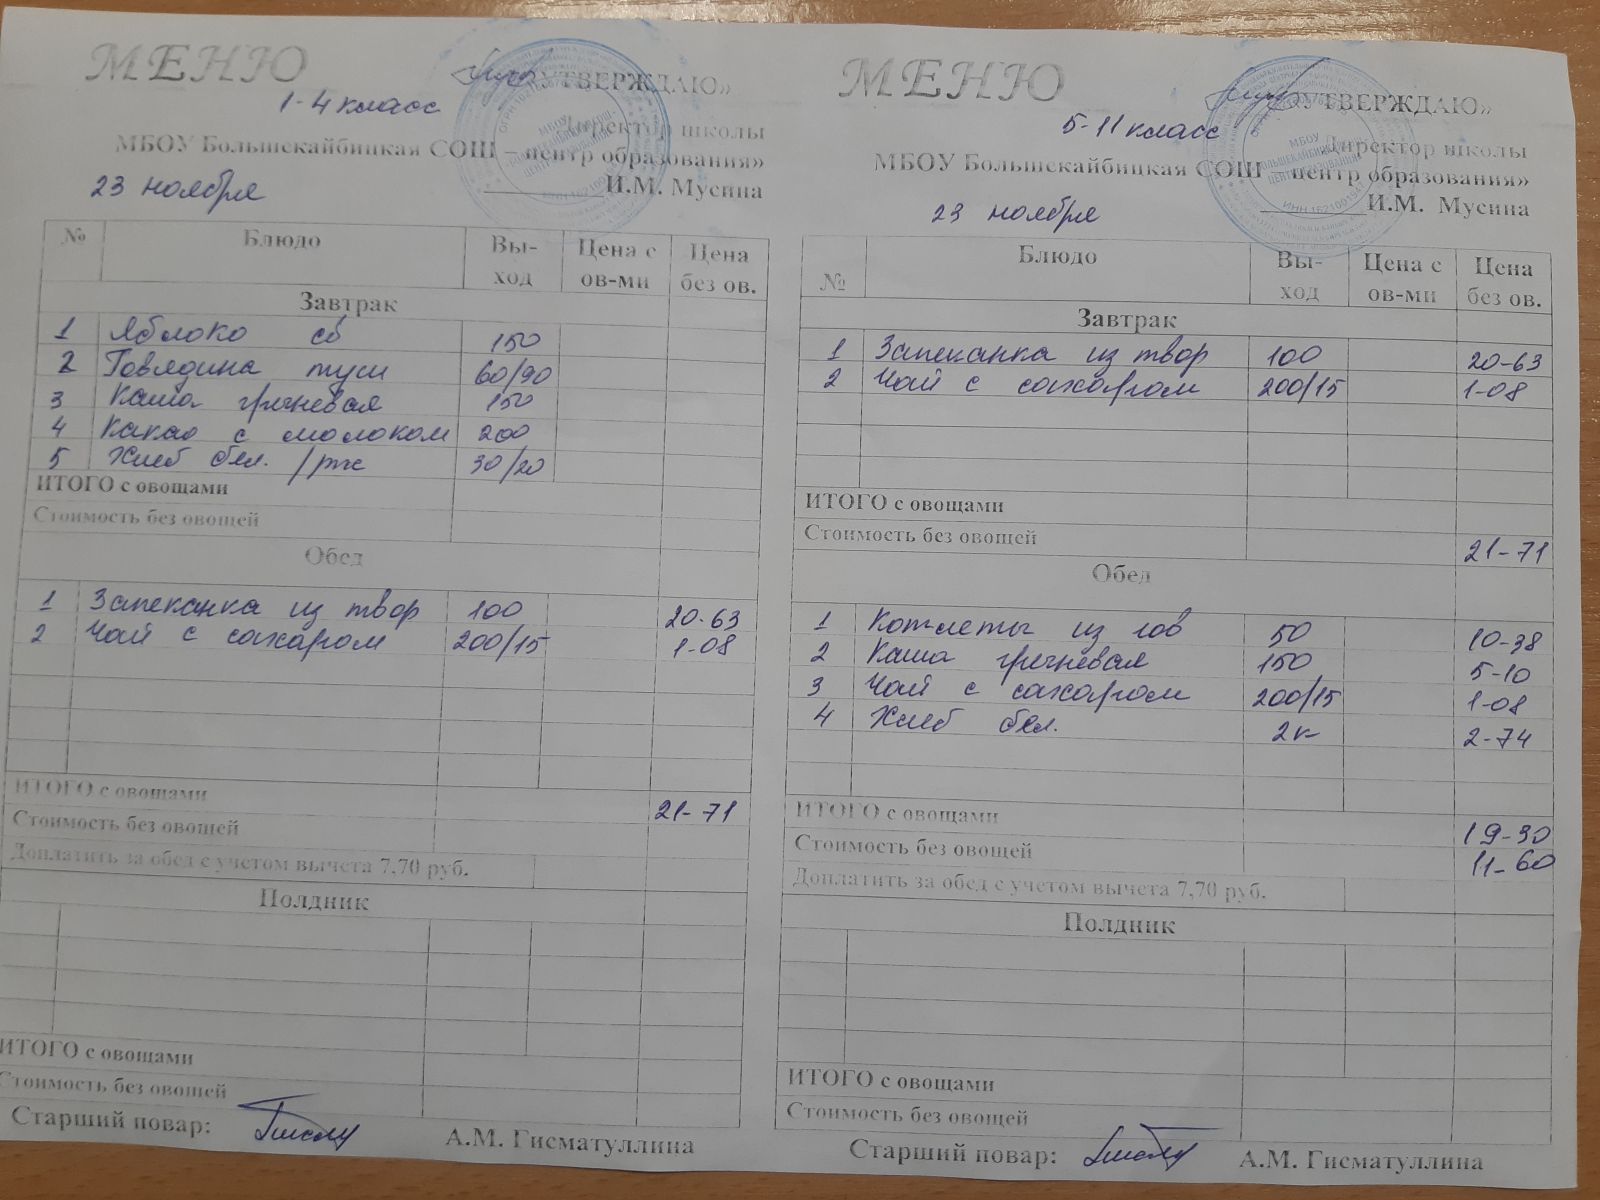 МЕНЮ
1-4 класс
«УТВЕРЖДАЮ»
Директор школы
МБОУ Большекайбицкая СОШ – центр образования»
23 ноября
И.М. Мусина
№ Блюдо Вы-ход Цена с ов-ми Цена без ов.
Завтрак
1 Яблоко св 150
2 Говядина туш 60/90
3 Каша гречневая 150
4 Какао с молоком 200
5 Хлеб бел. /рж 30/20
ИТОГО с овощами
Стоимость без овощей
Обед
1 Запеканка из твор 100 20-63
2 Чай с сахаром 200/15 1-08
ИТОГО с овощами
21-71
Стоимость без овощей
Доплатить за обед с учетом вычета 7,70 руб.
Полдник
ИТОГО с овощами
Стоимость без овощей
Старший повар: А.М. Гисматуллина
МЕНЮ
5-11 класс
«УТВЕРЖДАЮ»
Директор школы
МБОУ Большекайбицкая СОШ – центр образования»
23 ноября
И.М. Мусина
№ Блюдо Вы-ход Цена с ов-ми Цена без ов.
Завтрак
1 Запеканка из твор 100 20-63
2 Чай с сахаром 200/15 1-08
ИТОГО с овощами
Стоимость без овощей
21-71
Обед
1 Котлеты из гов 50 10-38
2 Каша гречневая 150 5-10
3 Чай с сахаром 200/15 1-08
4 Хлеб бел. 2к 2-74
ИТОГО с овощами
19-30
Стоимость без овощей
11-60
Доплатить за обед с учетом вычета 7,70 руб.
Полдник
ИТОГО с овощами
Стоимость без овощей
Старший повар: А.М. Гисматуллина